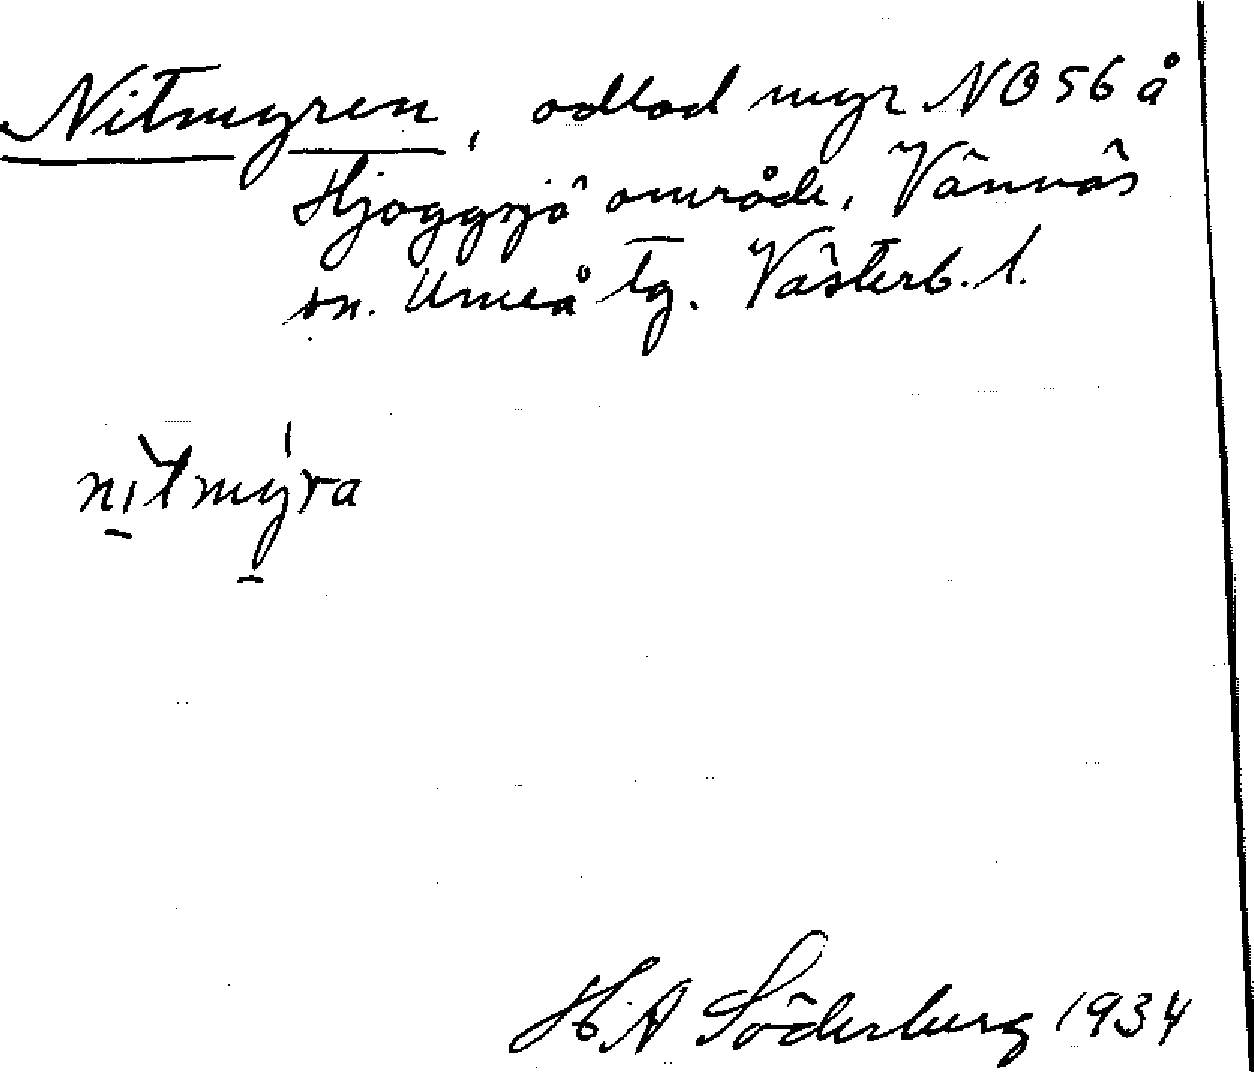 Nitmyren, odlad myr NO 56 å
Hjoggsjö område, Vännäs
sn. Umeå tg. Västerb. l.
nìtmýra
H. A Söderberg 1934